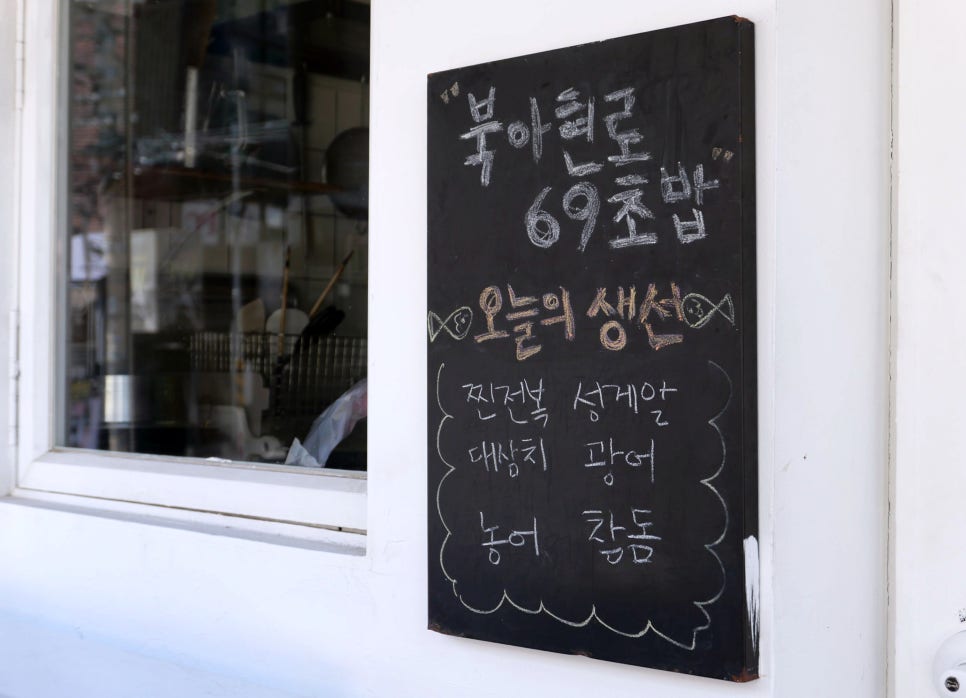 "북아현로
69초밥"
오늘의 생선
찐전복 성게알
대삼치 광어
농어 참돔